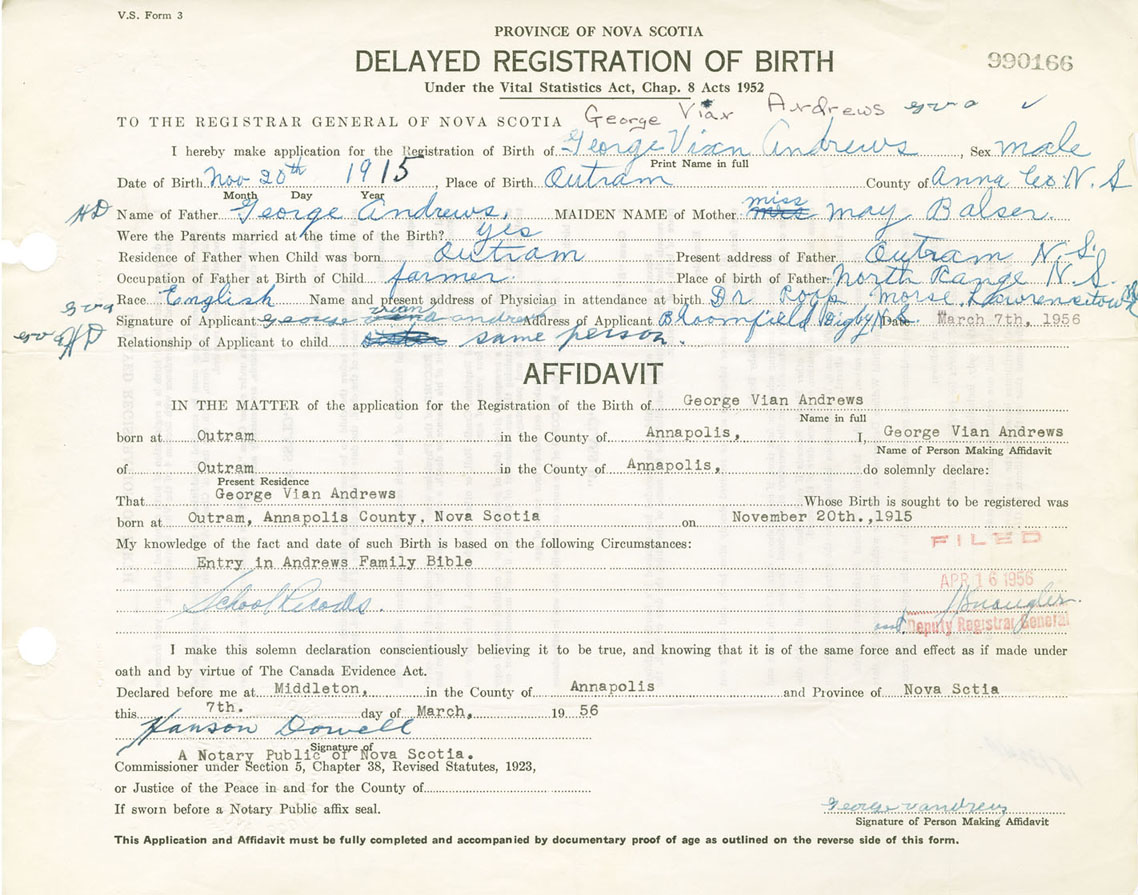 V.S. Form 3
PROVINCE OF NOVA SCOTIA
DELAYED REGISTRATION OF BIRTH
990166
Under the Vital Statistics Act, Chap. 8 Acts 1952
TO THE REGISTRAR GENERAL OF NOVA SCOTIA George Vian Andrews gva ✓
I hereby make application for the Registration of Birth of George Vian Andrews, Sex male
Print Name in full
Date of Birth Nov 20th 1915 Place of Birth Outram County of Anna Co N.S
Month Day Year
HD Name of Father George Andrews, MAIDEN NAME of Mother: miss May Balser.
Were the Parents married at the time of the Birth? yes
Residence of Father when Child was born Outram Present address of Father Outram N.S.
Occupation of Father at Birth of Child farmer. Place of birth of Father North Range N.S.
gva Race English Name and present address of Physician in attendance at birth Dr Poop Morse Lawrencetown
Signature of Applicant George vian andrew Address of Applicant Bloomfield Digby N.S. Date March 7th, 1956
gva HD Relationship of Applicant to child same person.
AFFIDAVIT
IN THE MATTER of the application for the Registration of the Birth of George Vian Andrews
Name in full
born at Outram in the County of Annapolis, I, George Vian Andrews
Name of Person Making Affidavit
of Outram in the County of Annapolis, do solemnly declare:
Present Residence
That George Vian Andrews Whose Birth is sought to be registered was
born at Outram, Annapolis County, Nova Scotia on November 20th.,1915
My knowledge of the fact and date of such Birth is based on the following Circumstances:
FILED
Entry in Andrews Family Bible
APR 16 1956
School Records.
asst. Deputy Registrar General
I make this solemn declaration conscientiously believing it to be true, and knowing that it is of the same force and effect as if made under
oath and by virtue of The Canada Evidence Act.
Declared before me at Middleton, in the County of Annapolis and Province of Nova Sctia
this 7th. day of March, 19 56
Hanson Dowell
Signature of
A Notary Public of Nova Scotia.
Commissioner under Section 5, Chapter 38, Revised Statutes, 1923,
or Justice of the Peace in and for the County of
If sworn before a Notary Public affix seal.
George v andrews
Signature of Person Making Affidavit
This Application and Affidavit must be fully completed and accompanied by documentary proof of age as outlined on the reverse side of this form.